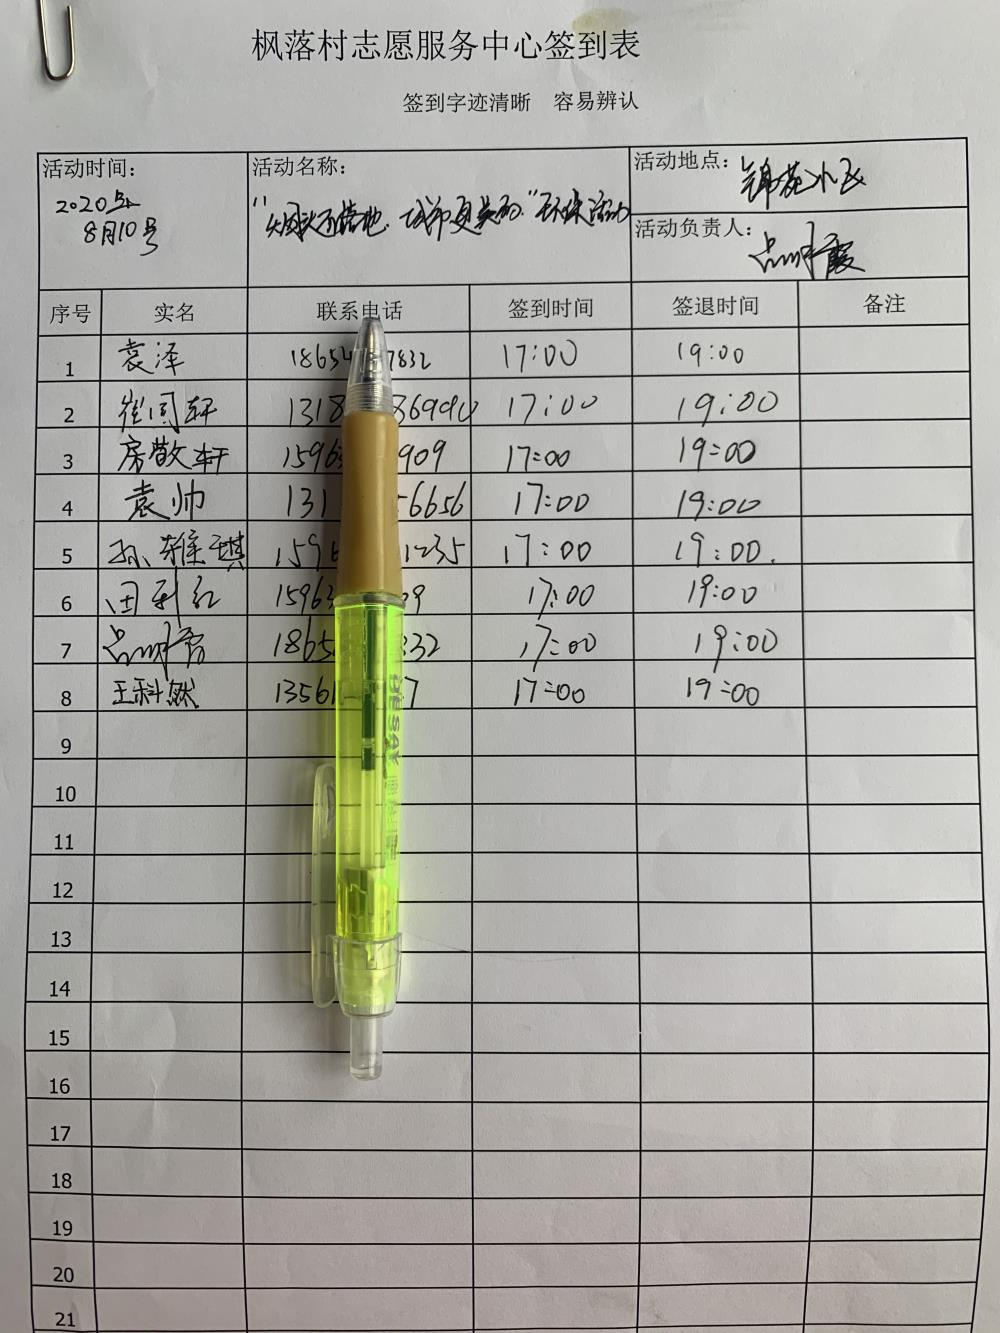 枫落村志愿服务中心签到表
签到字迹清晰 容易辨认
活动时间: 2020年8月10号
活动名称: "烟头不落地,城市更美丽"环保活动
活动地点: 锦苑小区
活动负责人:
序号 实名 联系电话 签到时间 签退时间 备注
1 袁泽 18654 7832 17:00 19:00
2 崔同轩 1318 17:00 19:00
3 房敬轩 1596 909 17:00 19:00
4 袁帅 131 6656 17:00 19:00
5 孙雅琪 1596 1235 17:00 19:00.
6 田利红 15963 09 17:00 19:00
7 1865 332 17:00 19:00
8 王科然 13561 7 17:00 19:00
9
10
11
12
13
14
15
16
17
18
19
20
21